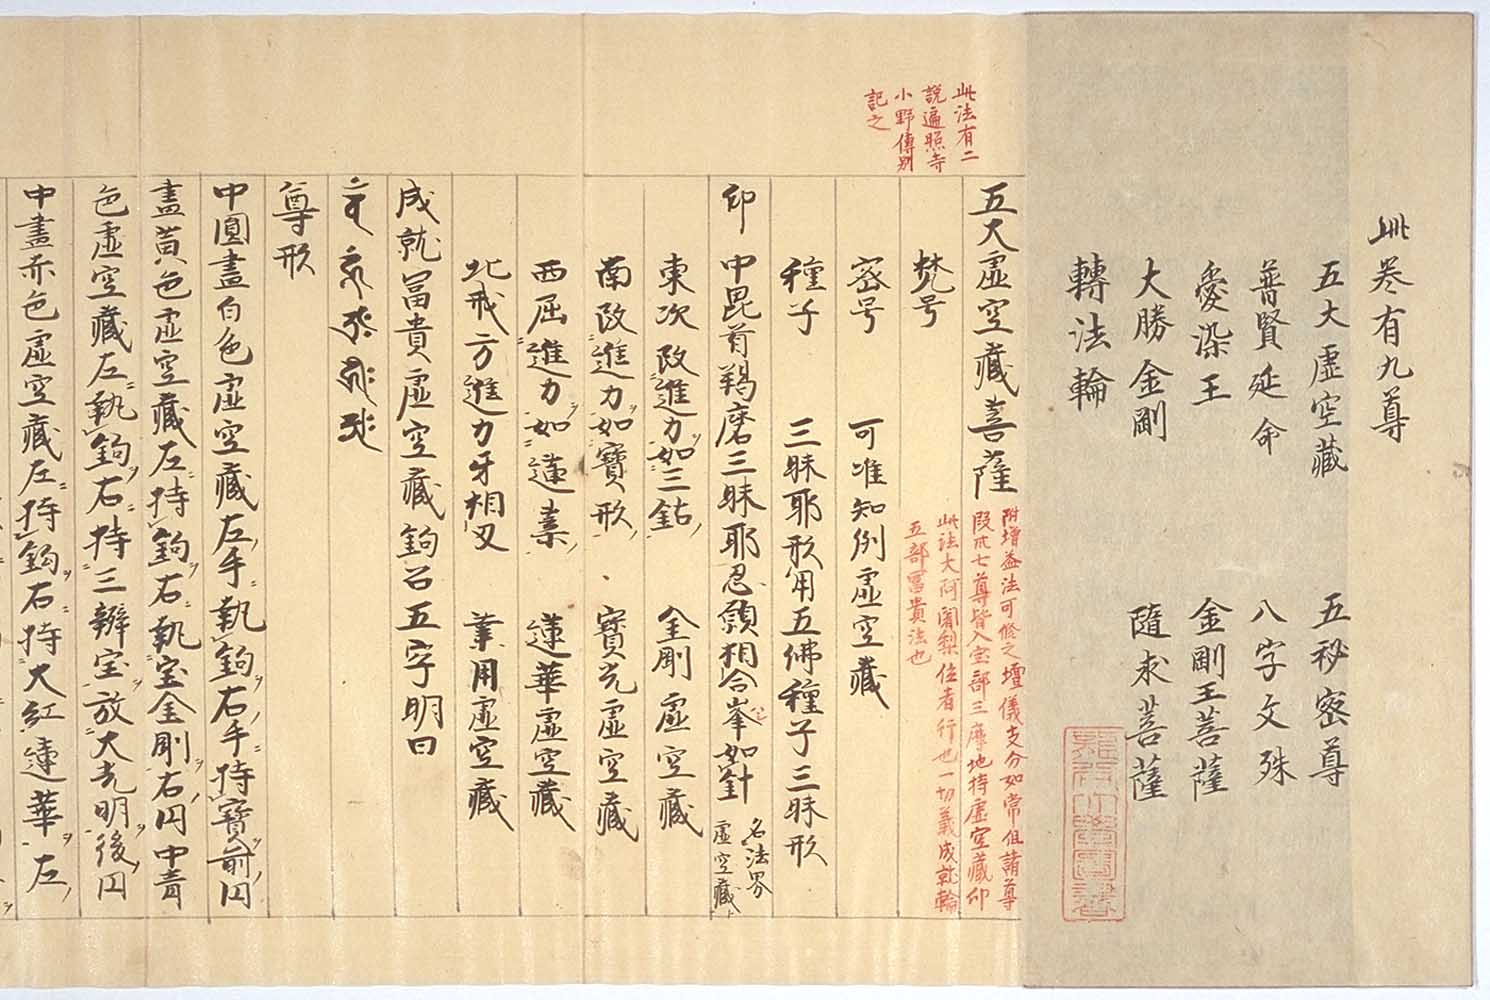 此卷有九尊
五大虛空藏　五秘密尊
普賢延命　八字文殊
愛染王　金剛王菩薩
大勝金剛　隨求菩薩
轉法輪
此法有二
說遍照寺
小野傳別
記之
五大虛空藏菩薩
附增益法可修之壇儀支分如常但諸尊
段卅七尊皆入宝部三摩地持虛空藏印
此法大阿闍梨位者行也一切義成就輪
五部冨貴法也
梵号
密号　可准知例虛空藏
種子　三昧耶形用五佛種子三昧形
印　中毘首羯磨三昧耶忍願相合峯如針
名法界
虛空藏
東次改進力如三鈷　金剛虛空藏
南改進力如寶形　寶光虛空藏
西屈進力如蓮葉　蓮華虛空藏
北戒方進力牙相叉　業用虛空藏
成就冨貴虛空藏鉤召五字明曰
尊形
中圓畫白色虛空藏左手執鉤右手持寶前円
畫黃色虛空藏左持鉤右執宝金剛右円中青
色虛空藏左執鉤右持三瓣宝放大光明後円
中畫赤色虛空藏左持鉤右持大紅蓮華左